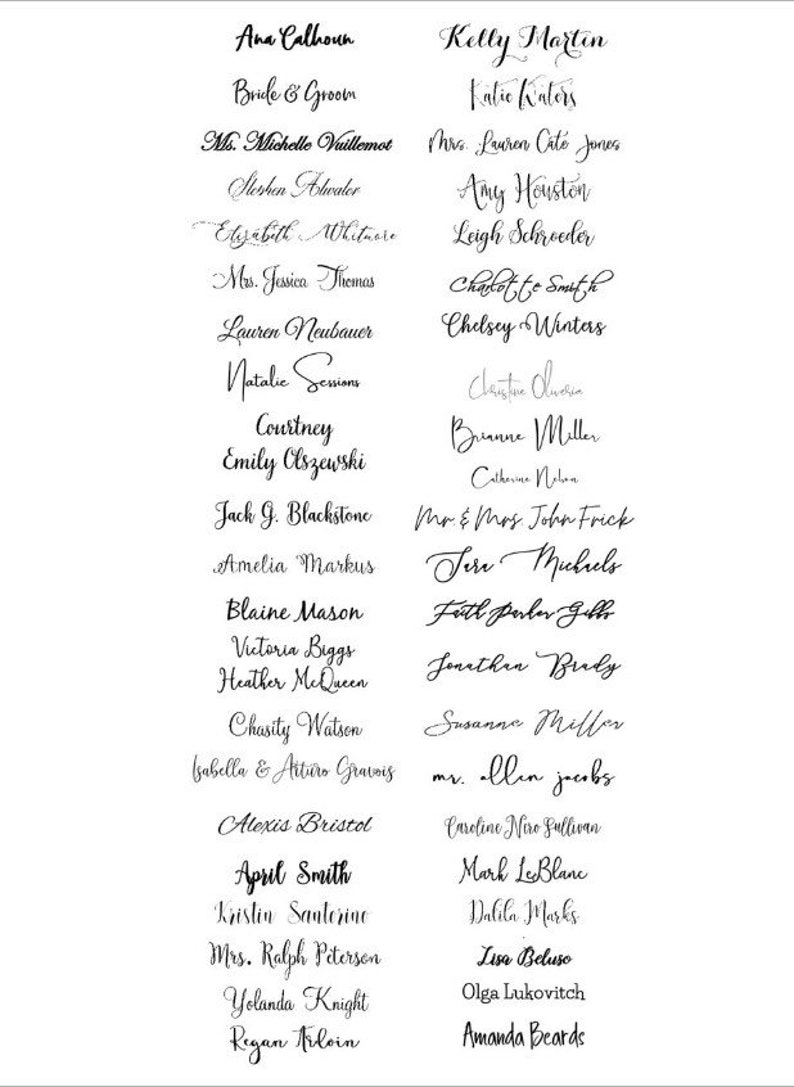 Ana Calhoun
Bride & Groom
Ms. Michelle Vuillemot
Stephen Atwater
Elizabeth Whitmore
Mrs. Jessica Thomas
Lauren Neubauer
Natalie Sessions
Courtney
Emily Olszewski
Jack G. Blackstone
Amelia Markus
Blaine Mason
Victoria Biggs
Heather McQueen
Chasity Watson
Isabella & Arturo Gravois
Alexis Bristol
April Smith
Kristin Santorino
Mrs. Ralph Peterson
Yolanda Knight
Regan Ardoin
Kelly Martin
Katie Waters
Mrs. Lauren Cate Jones
Amy Houston
Leigh Schroeder
Charlotte Smith
Chelsey Winters
Christine Oliveria
Brianne Miller
Catherine Nelson
Mr & Mrs John Frick
Tara Michaels
Faith Parker Gibbs
Jonathan Brady
Susanne Miller
mr. allen jacobs
Caroline Niro Sullivan
Mark LeBlanc
Dalila Marks
Lisa Beluso
Olga Lukovitch
Amanda Beards